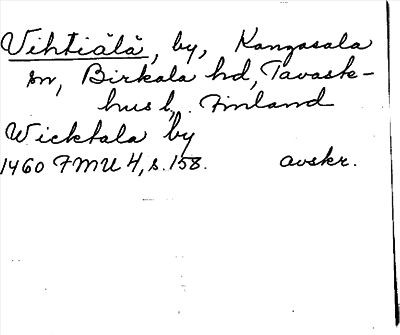 Vihtiälä, by, Kangasala
sn, Birkala hd, Tavast-
hus l, Finland
Wicktala by
1460 FMU 4, s. 158. avskr.